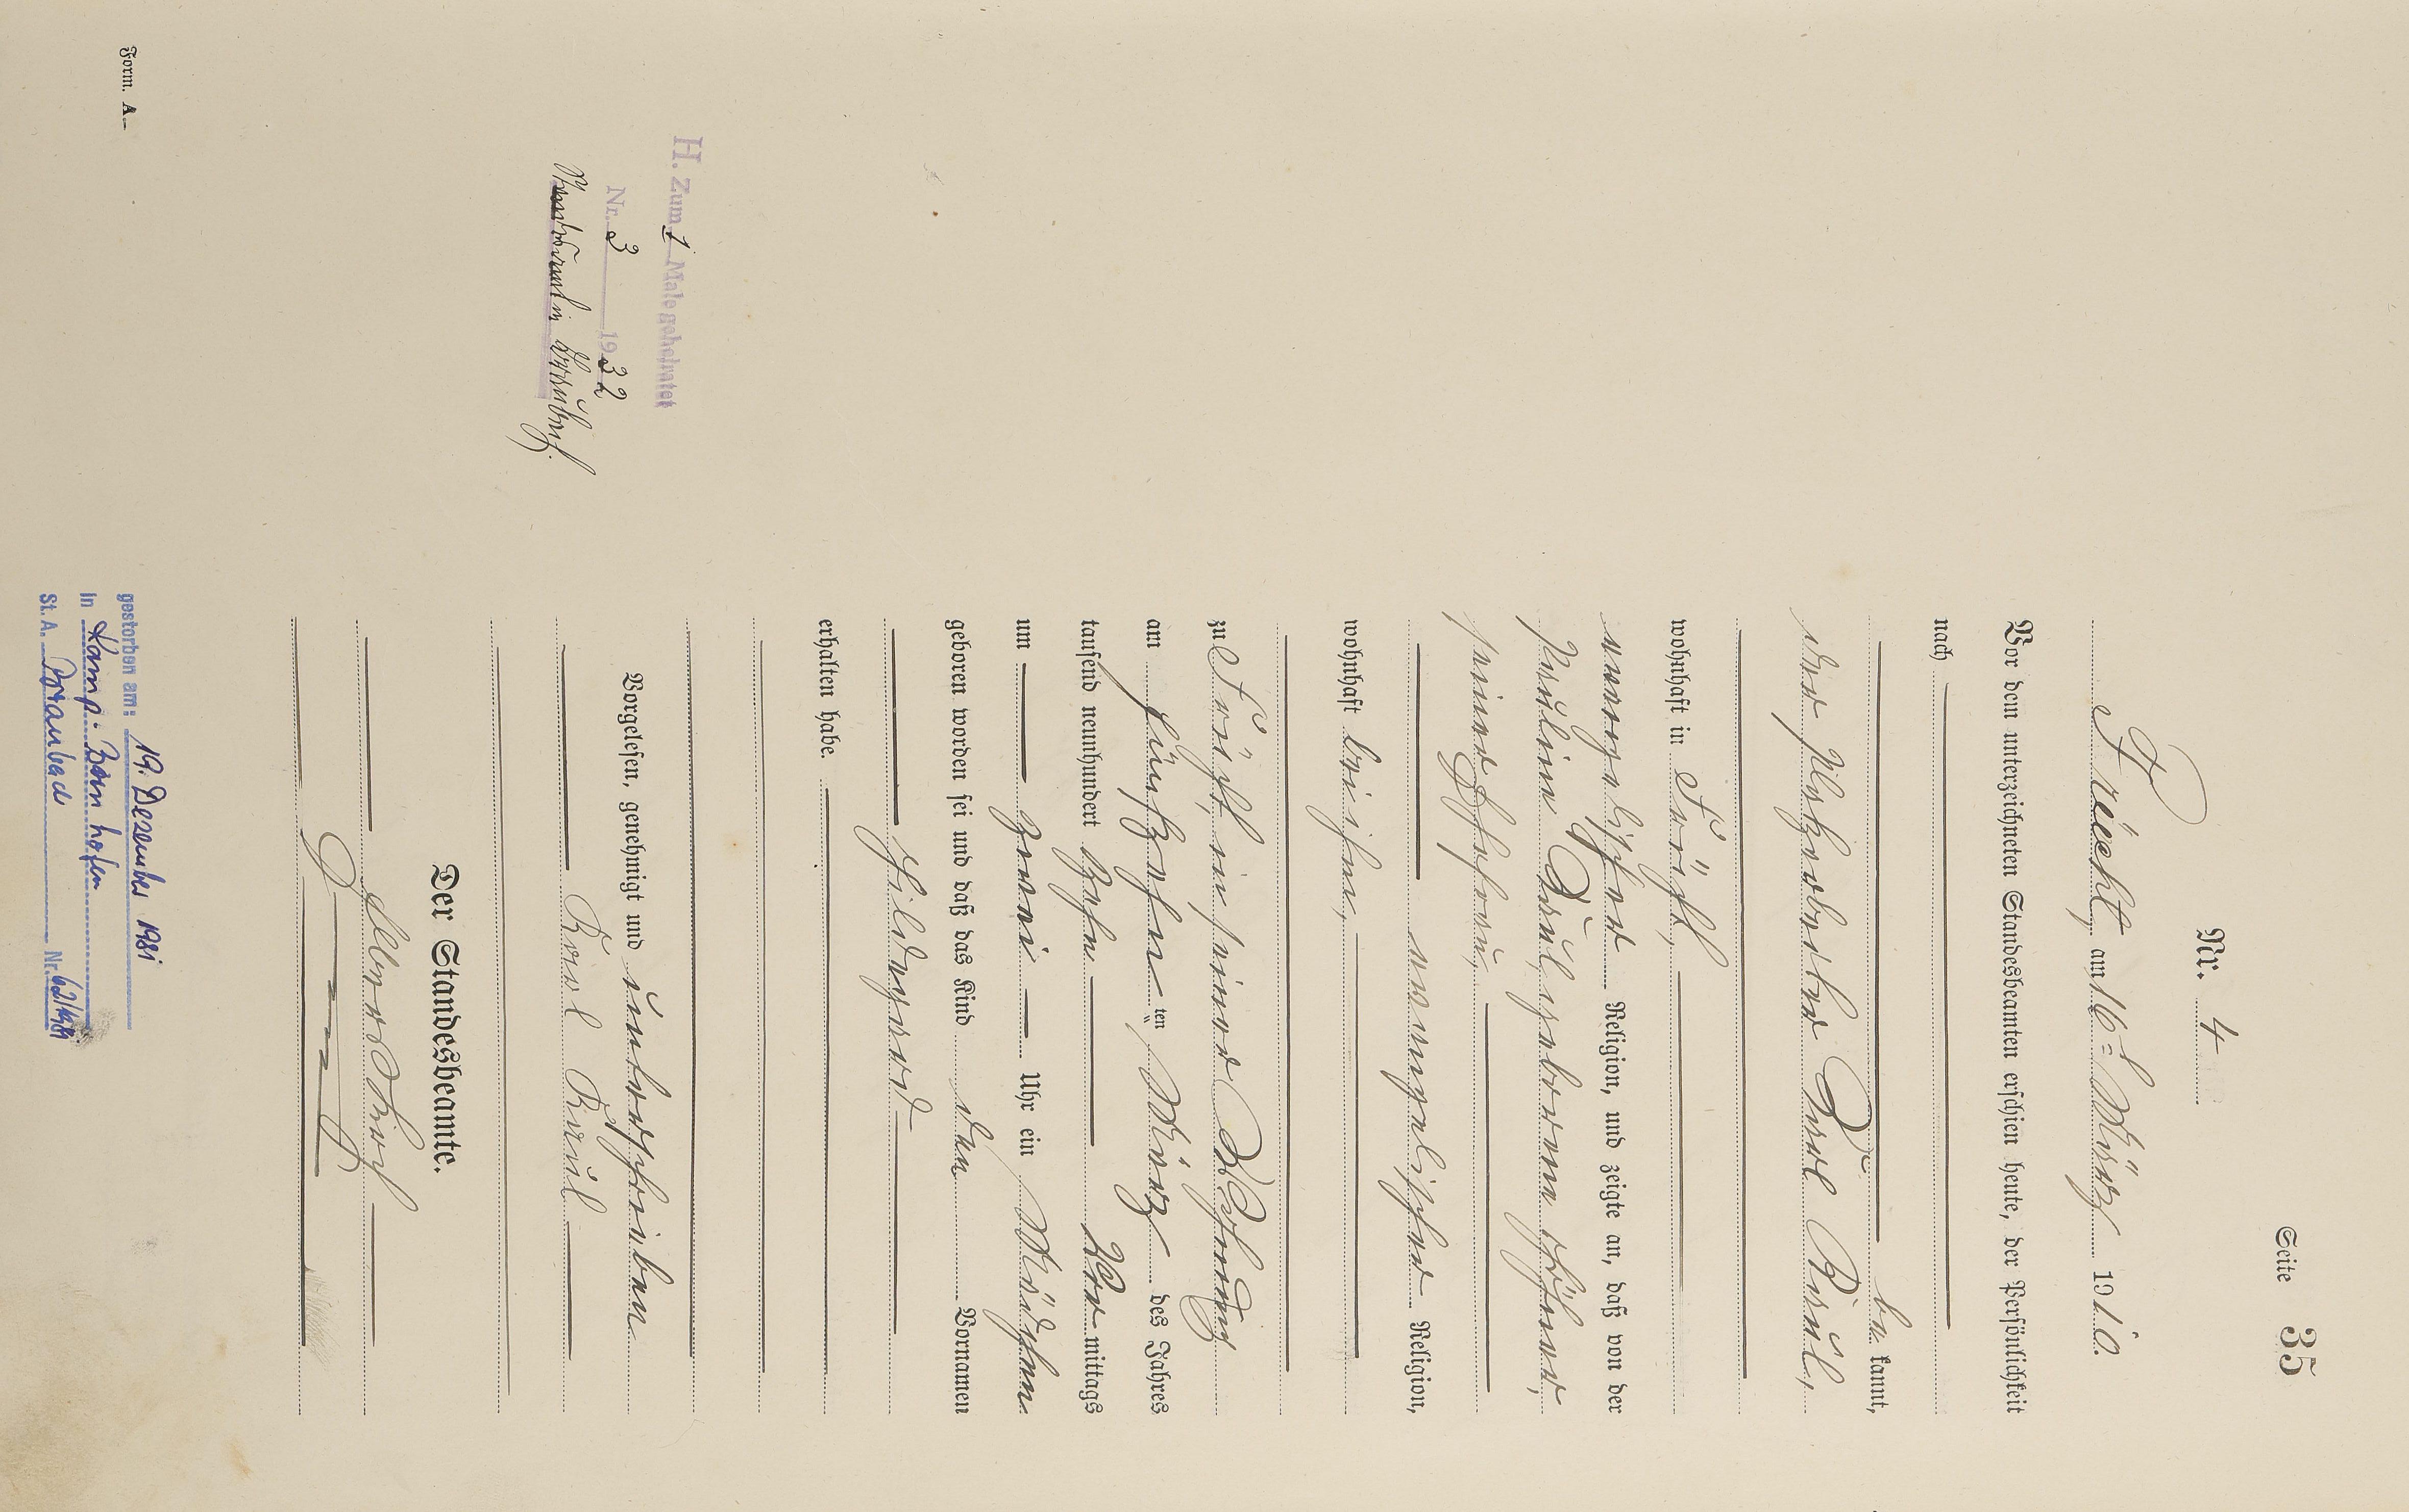 Seite 35
Nr. 4
Frücht, am 16ten März 1910.
Vor dem unterzeichneten Standesbeamten erschien heute, der Persönlichkeit
nach
be kannt,
der Karl
wohnhaft in Frücht,
evangelischer Religion, und zeigte an, daß von der
Pauline geborenen
seiner Ehefrau,
evangelischer Religion,
wohnhaft bei ihm,
zu Frücht, in seiner Wohnung
am fünfzehnten März des Jahres
tausend neunhundert zehn Vor mittags
um zwei Uhr ein Mädchen
geboren worden sei und daß das Kind den Vornamen
Hildegard
erhalten habe.
Vorgelesen, genehmigt und unterschrieben
Karl
Der Standesbeamte.
H. Zum 1 Male geheiratet
Nr. 3 1932
gestorben am: 19. Dezember 1981
in Kamp-Bornhofen
St. A. Braubach Nr. 62/1981
Form. A.